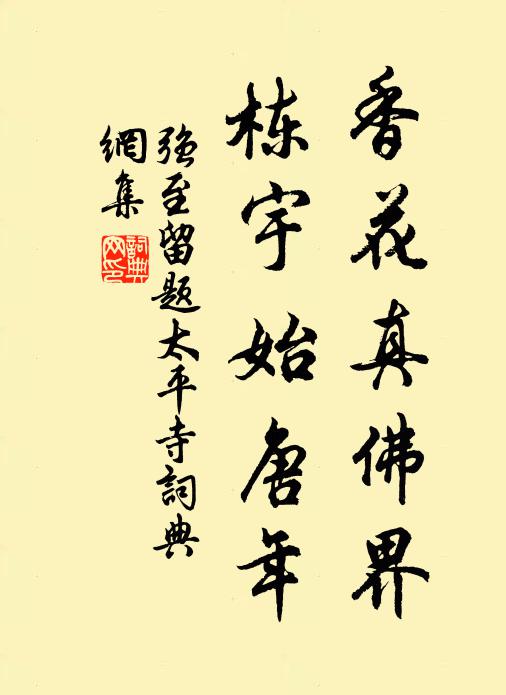 香花真佛界
栋宇始唐年
强至留题太平寺詞典
網集
詞典网印